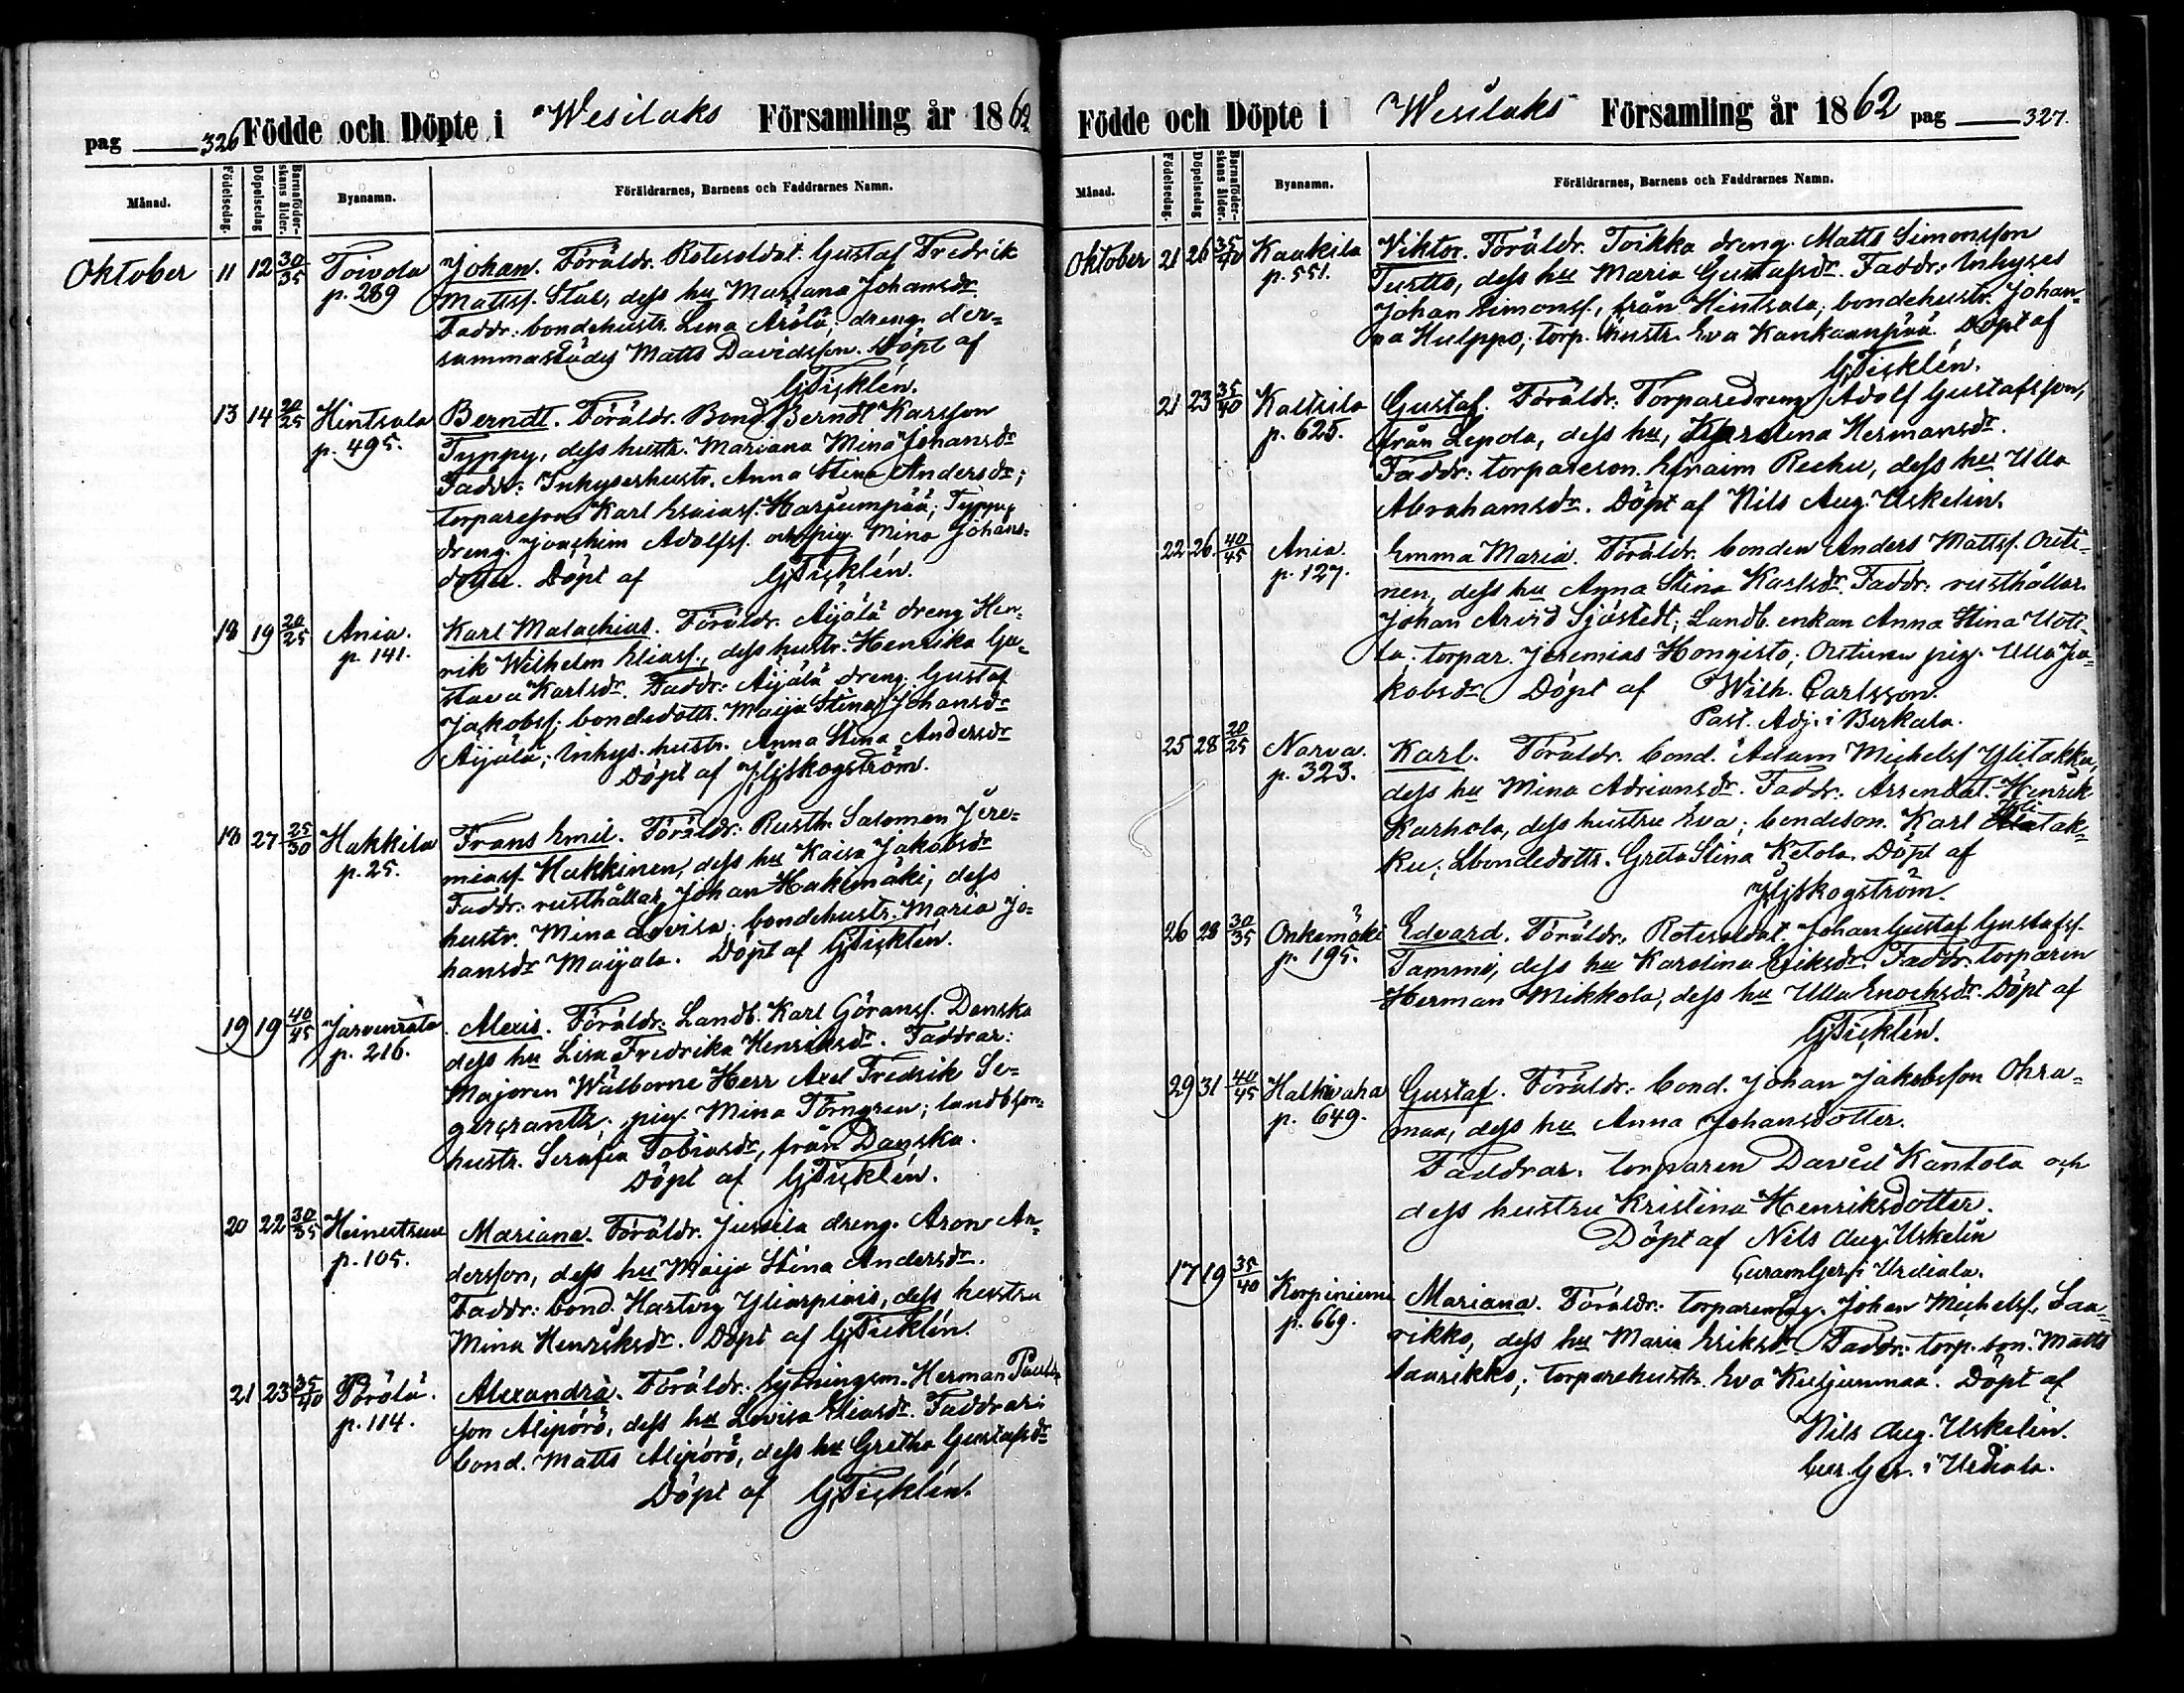 pag 326 Födde och Döpte i Wesilaks Församling år 1862
Månad. Födelsedag. Döpelsedag Barnaföderskans ålder. Byanamn. Föräldrarnes, Barnens och Faddrarnes Namn.
Oktober 11 12 30/35 Toivola Johan. Föräldr. Rotesoldat. Gustaf Fredrik
p. 289 Mattsf. Stal, dess hu Mariana Johansdr.
Faddr: bondehustr. Lena Arölä; dreng. der=
sammastädes Matts Davidsson. Döpt af
G. Ticklén.
13 14 20/25 Hintsala Berndt. Föräldr. Bond. Berndt Karsson
p. 495. Typpy, dess hustr. Mariana Mina Johansdr
Faddr: Inhyseshustr. Anna Stina Andersdr;
torpareson Karl Esaiasf. Harjumpää; Typpy
dreng. Joachim Adolfsf. och pig. Mina Johans=
dotter. Döpt af G. Ticklén.
18 19 20/25 Ania. Karl Malachias. Föräldr. Äijälä dreng Hen=
p. 141. rik Wilhelm Eliasf., dess hustr. Henrika Gu=
stava Karlsdr. Faddr: Äijälä dreng. Gustaf
Jakobsf; bondedottr. Maija Stina Johansdr
Äijälä; Inhys. hustr. Anna Stina Andersdr
Döpt af Skogström.
18 27 25/30 Hakkila Frans Emil. Föräldr: Rusth. Salomon Jere=
p. 25. miasf. Hakkinen, dess hu Kaisa Jakobsdr
Faddr: rusthållar. Johan Hakimäki, dess
hustr. Mina Lovisa; bondehustr. Maria Jo=
hansdr Maijala. Döpt af G. Ticklén.
19 19 40/45 Jarvenrata Alexis. Föräldr. Landb. Karl Göransf. Danska
p. 216. dess hu Lisa Fredrika Henriksdr. Faddrar:
Majoren Wälborne Herr Axel Fredrik Se=
gercranth; pig. Mina Törngren; landbson=
hustr. Serafia Tobiasdr, från Danska.
Döpt af G. Ticklén.
20 22 30/35 Heinustrue Mariana. Föräldr. Jussila dreng. Aron An=
p. 105. dersson, dess hu Maija Stina Andersdr.
Faddr: bond. Hartvig Yliarpiais, dess hustru
Mina Henriksdr. Döpt af G. Ticklén.
21 23 35/40 Pörölä. Alexandra. Föräldr. Sytningsm. Herman Pauls=
p. 114. son Alipörö, dess hu Lovisa Eliasdr. Faddrar:
bond. Matts Alipörö, dess hu Gretha Gustafsdr
Döpt af G. Ticklén.
Födde och Döpte i Wesilaks Församling år 1862 pag 327.
Månad. Födelsedag. Döpelsedag Barnaföderskans ålder. Byanamn. Föräldrarnes, Barnens och Faddrarnes Namn.
Oktober 21 26 35/40 Kaakila Viktor. Föräldr. Toikka dreng. Matts Simonsson
p. 551. Turtto, dess hu Maria Gustafsdr. Faddr: Inhyses
Johan Simonsf., från Hintsala; bondehustr. Johan=
na Hulppo; torp. hustr. Eva Kankaanpää. Döpt af
G. Ticklén.
21 23 35/40 Kaltsila Gustaf. Föräldr: Torparedreng Adolf Gustafsson,
p. 625. från Lepola, dess hu, Karolina Hermansdr.
Faddr: torpareson. Efraim Reeku, dess hu Ulla
Abrahamsdr. Döpt af Nils Aug. Uskelin.
22 26 40/45 Ania. Emma Maria. Föräldr. bonden Anders Mattsf. Outi=
p. 127. nen, dess hu Anna Stina Karlsdr. Faddr: rusthållar.
Johan Arvid Sjöstedt; Landb. enkan Anna Stina Uoti=
la; torpar. Jeremias Hongisto; Outinen pig. Ulla Ja=
kobsdr. Döpt af Wilh. Carlsson.
Past. Adj. i Birkala.
25 28 20/25 Narva. Karl. Föräldr. bond. Adam Michelsf Ylitakku,
p. 323. dess hu Mina Adriansdr. Faddr: Arrendat. Henrik
Karhola, dess hustru Eva; bondeson. Karl Ylitak=
ku; Lbondedottr. Greta Stina Ketola. Döpt af
Skogström.
26 28 30/35 Onkemäki Edvard. Föräldr. Rotesoldat. Johan Gustaf Gustafsf.
p. 195. Tammi, dess hu Karolina Eriksdr. Faddr. torparen
Herman Mikkola, dess hu Ulla Enochsdr. Döpt af
G. Ticklén.
29 31 40/45 Halkivaha Gustaf. Föräldr. bond. Johan Jakobsson Ohra=
p. 649. maa, dess hu Anna Johansdotter.
Faddrar. torparen David Kantola och
dess hustru Kristina Henriksdotter.
Döpt af Nils Aug. Uskelin
Curam Ger. i Urdiala.
17 19 35/40 Korpiniemi Mariana. Föräldr: torparemåg. Johan Michelsf. Saa=
p. 669. rikko, dess hu Maria Eriksdr. Faddr: torp. son. Matts
Saarikko; torparehustr. Eva Kuljunmaa. Döpt af
Nils Aug. Uskelin.
Cur. Ger. i Urdiala.